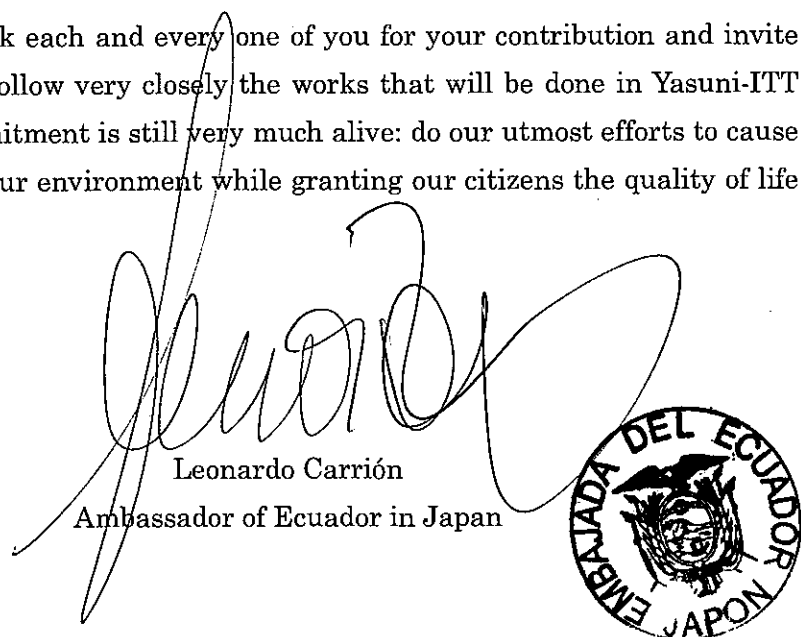 k each and every one of you for your contribution and invite
ollow very closely the works that will be done in Yasuni-ITT
itment is still very much alive: do our utmost efforts to cause
ur environment while granting our citizens the quality of life
Leonardo Carrión
Ambassador of Ecuador in Japan
EMBAJADA DEL ECUADOR
JAPON